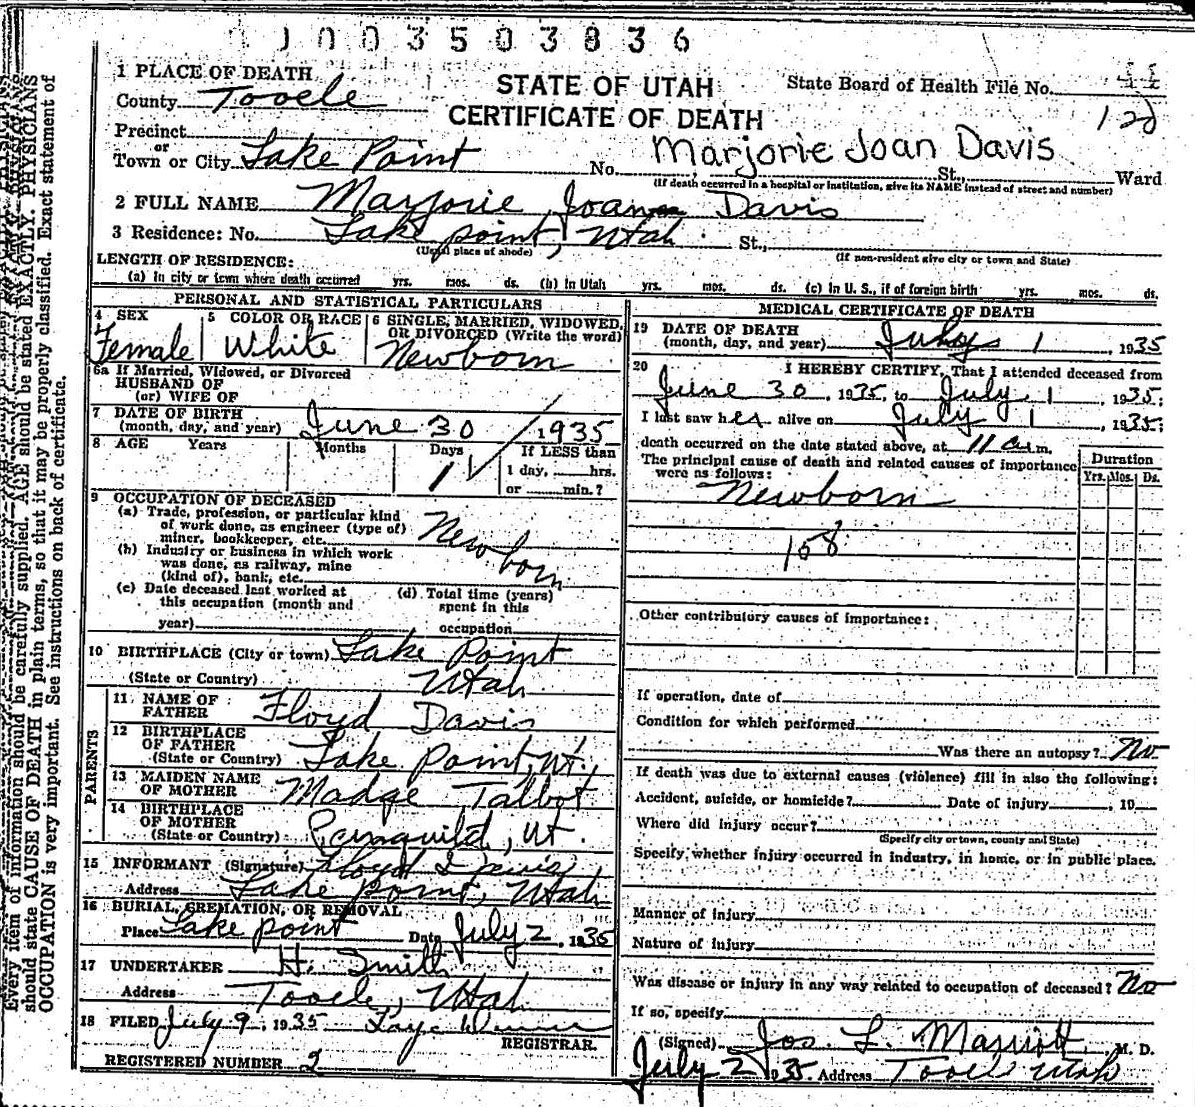 1003503836
1 PLACE OF DEATH
County Tooele
STATE OF UTAH
CERTIFICATE OF DEATH
State Board of Health File No.
Precinct
or
Town or City Lake Point No. Marjorie Joan Davis St., Ward
(If death occurred in a hospital or institution, give its NAME instead of street and number)
2 FULL NAME Marjorie Joan Davis
3 Residence: No. Lake point, Utah St.,
(Usual place of abode) (If non-resident give city or town and State)
LENGTH OF RESIDENCE:
(a) In city or town where death occurred yrs. mos. ds. (b) In Utah yrs. mos. ds. (c) In U. S., if of foreign birth yrs. mos. ds.
PERSONAL AND STATISTICAL PARTICULARS
4 SEX
Female
5 COLOR OR RACE
White
6 SINGLE, MARRIED, WIDOWED,
OR DIVORCED (Write the word)
Newborn
6a If Married, Widowed, or Divorced
HUSBAND OF
(or) WIFE OF
7 DATE OF BIRTH
(month, day, and year) June 30 / 1935
8 AGE Years Months Days If LESS than
1 1 day, hrs.
or min.?
9 OCCUPATION OF DECEASED
(a) Trade, profession, or particular kind
of work done, as engineer (type of)
miner, bookkeeper, etc. Newborn
(b) Industry or business in which work
was done, as railway, mine
(kind of), bank, etc.
(c) Date deceased last worked at
this occupation (month and
year)
(d) Total time (years)
spent in this
occupation
10 BIRTHPLACE (City or town) Lake Point
(State or Country) Utah
PARENTS
11 NAME OF
FATHER Floyd Davis
12 BIRTHPLACE
OF FATHER
(State or Country) Lake Point, Ut.
13 MAIDEN NAME
OF MOTHER Madge Talbot
14 BIRTHPLACE
OF MOTHER
(State or Country) , Ut.
15 INFORMANT (Signature) Floyd Davis
Address Lake point, Utah
16 BURIAL, CREMATION, OR REMOVAL
Place Lake point Date July 2, 1935
17 UNDERTAKER H. Smith
Address Tooele, Utah
18 FILED July 9, 1935
REGISTRAR.
REGISTERED NUMBER 2
MEDICAL CERTIFICATE OF DEATH
19 DATE OF DEATH
(month, day, and year) July 1, 1935
20 I HEREBY CERTIFY, That I attended deceased from
June 30, 1935, to July 1, 1935;
I last saw her alive on July 1, 1935;
death occurred on the date stated above, at 11 a.m.
The principal cause of death and related causes of importance
were as follows:
Duration
Yrs. Mos. Ds.
Newborn
158
Other contributory causes of importance:
If operation, date of
Condition for which performed
Was there an autopsy? No
If death was due to external causes (violence) fill in also the following:
Accident, suicide, or homicide? Date of injury , 19
Where did injury occur?
(Specify city or town, county and State)
Specify whether injury occurred in industry, in home, or in public place.
Manner of injury
Nature of injury
Was disease or injury in any way related to occupation of deceased? No
If so, specify
(Signed) Jos. L. Marriott M. D.
July 2 1935 Address Tooele Utah
Every item of information should be carefully supplied. AGE should be stated EXACTLY. PHYSICIANS
should state CAUSE OF DEATH in plain terms, so that it may be properly classified. Exact statement of
OCCUPATION is very important. See instructions on back of certificate.